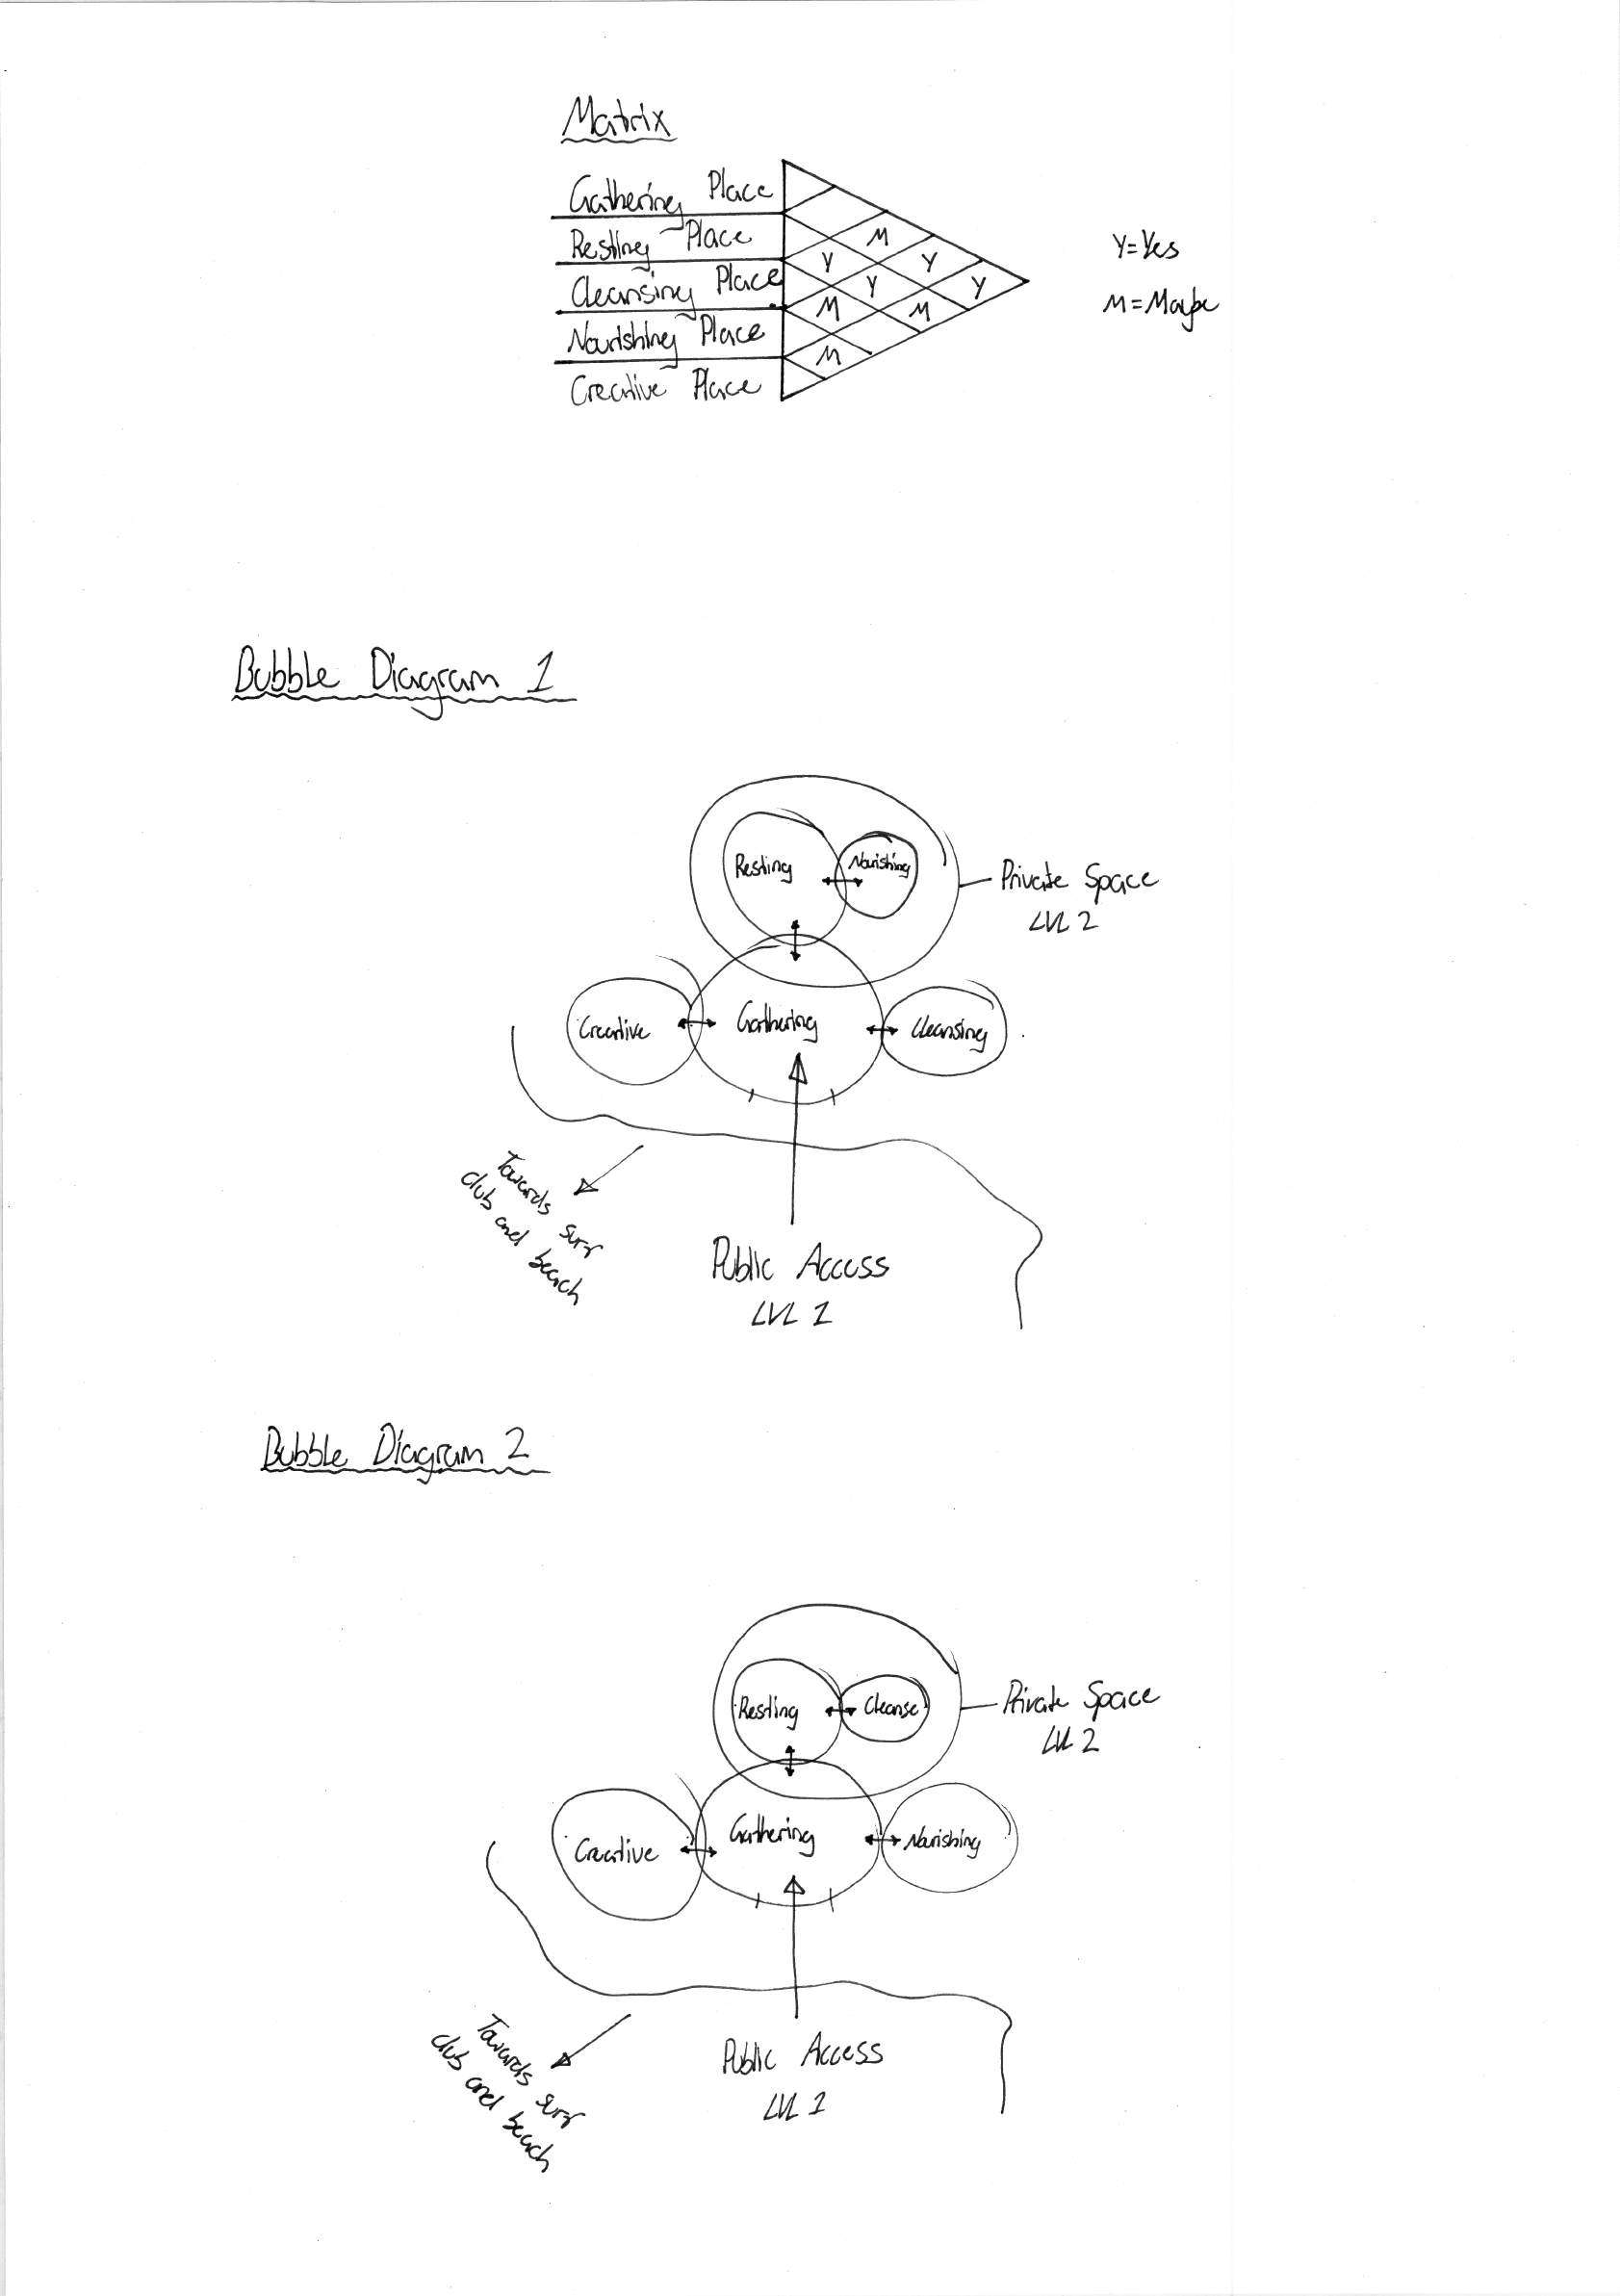 Matrix
Gathering Place
Resting Place
Cleansing Place
Nourishing Place
Creative Place
M
Y Y
Y Y
M M
M
Y=Yes
M=Maybe
Bubble Diagram 1
Resting
Nourishing
Private Space
LVL 2
Creative
Gathering
Cleansing
Towards surf
club and beach
Public Access
LVL 1
Bubble Diagram 2
Resting
Cleanse
Private Space
LVL 2
Creative
Gathering
Nourishing
Towards surf
club and beach
Public Access
LVL 1